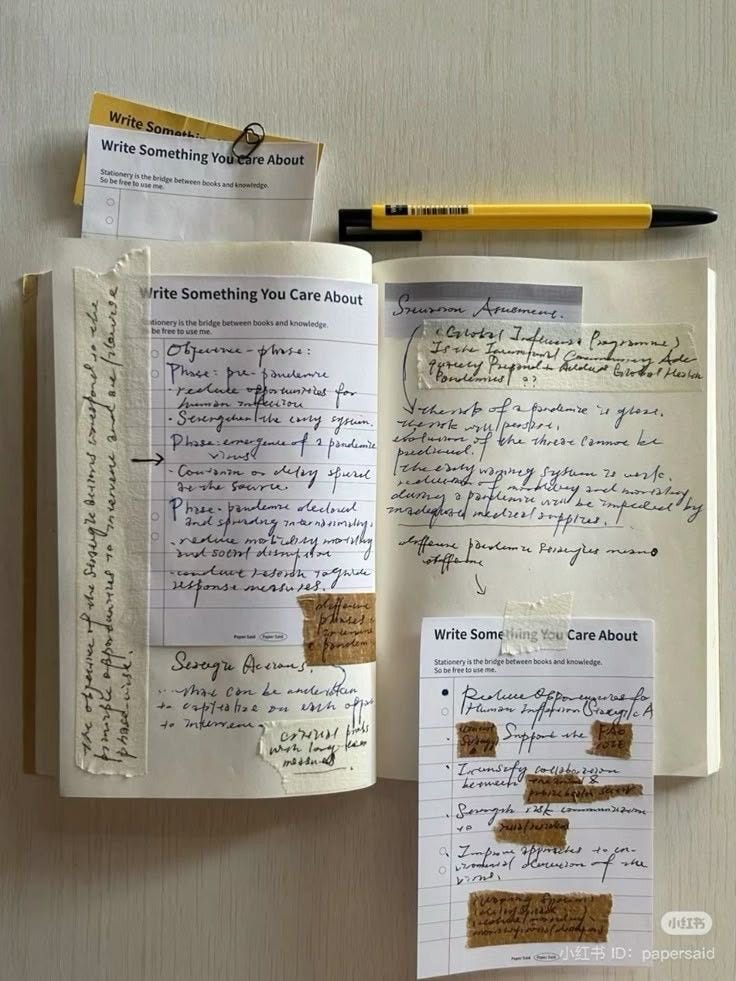 Write Something
Write Something You Care About
Stationery is the bridge between books and knowledge.
So be free to use me.
the objective of the strategic actions correspond to the
principle opportunities to intervene and are
phased-wise.
Write Something You Care About
Stationery is the bridge between books and knowledge.
be free to use me.
Objective - phase:
Phase: pre-pandemic
- reduce opportunities for
human infection
- Strengthen the early system.
Phase: emergence of a pandemic
virus
- Contain or delay spread
at the source.
Phase: pandemic declared
and spreading internationally.
- reduce morbidity, mortality
and social disruption
- conduct research to guide
response measures.
Paper Said Paper Said
different
phases
intervene
pandemic
Strategic Actions
what can be undertaken
to capitalize on each
to intervene
critical
with long-term
measures.
Situation Assessment.
Global Influenza Programme
Is the International Community
Prepared to Address Global Health
Pandemics ??
the risk of a pandemic is
the risk will persist.
evolution of the threat cannot be
predicted.
the early warning system is weak.
reduction of morbidity and mortality
during a pandemic will be impeded by
inadequate medical supplies.
different pandemic strategies
Write Something You Care About
Stationery is the bridge between books and knowledge.
So be free to use me.
Reduce Opportunities for
Human Infection Strategic A
Support the FAO
Intensify collaboration
between
Strength risk communication
to
Improve approaches to
detection of the
virus.
Paper Said Paper Said
小红书
小红书 ID: papersaid